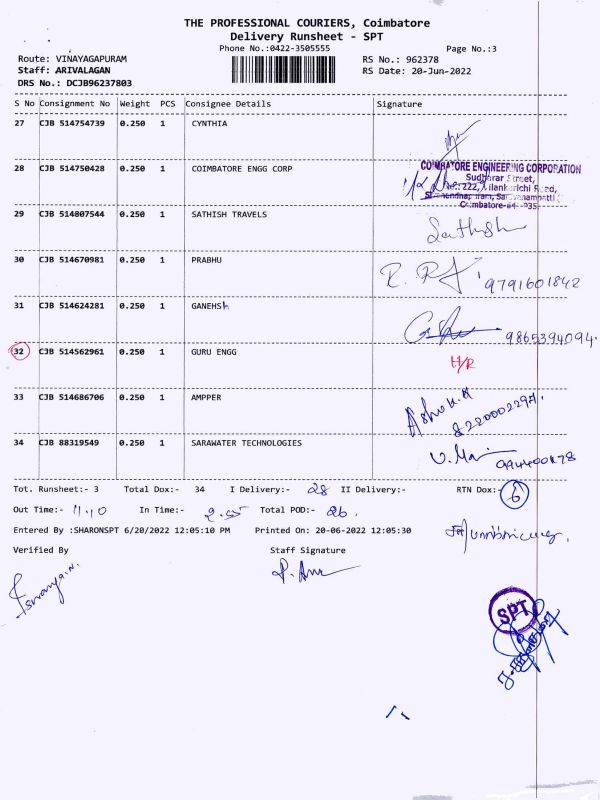 THE PROFESSIONAL COURIERS, Coimbatore
Delivery Runsheet - SPT
Phone No.:0422-3505555 Page No.:3
Route: VINAYAGAPURAM RS No.: 962378
Staff: ARIVALAGAN RS Date: 20-Jun-2022
DRS No.: DCJB96237803
S No Consignment No Weight PCS Consignee Details Signature
27 CJB 514754739 0.250 1 CYNTHIA
28 CJB 514750428 0.250 1 COIMBATORE ENGG CORP
COIMBATORE ENGINEERING CORPORATION
Street,
Coimbatore-
29 CJB 514807544 0.250 1 SATHISH TRAVELS Sathish
30 CJB 514670981 0.250 1 PRABHU 9791601842
31 CJB 514624281 0.250 1 GANEHSh 9865394094.
32 CJB 514562961 0.250 1 GURU ENGG H/R
33 CJB 514686706 0.250 1 AMPPER Ashok.
34 CJB 88319549 0.250 1 SARAWATER TECHNOLOGIES
Tot. Runsheet:- 3 Total Dox:- 34 I Delivery:- 28 II Delivery:- RTN Dox:- 6
Out Time:- 11.10 In Time:- 2.55 Total POD:- 26.
Entered By :SHARONSPT 6/20/2022 12:05:10 PM Printed On: 20-06-2022 12:05:30
Verified By Staff Signature
SPT